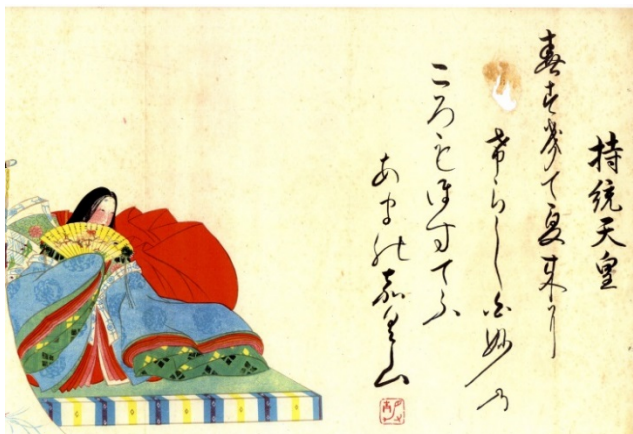 持統天皇
春すきて夏来に
けらし白妙の
ころもほすてふ
あまのかく山